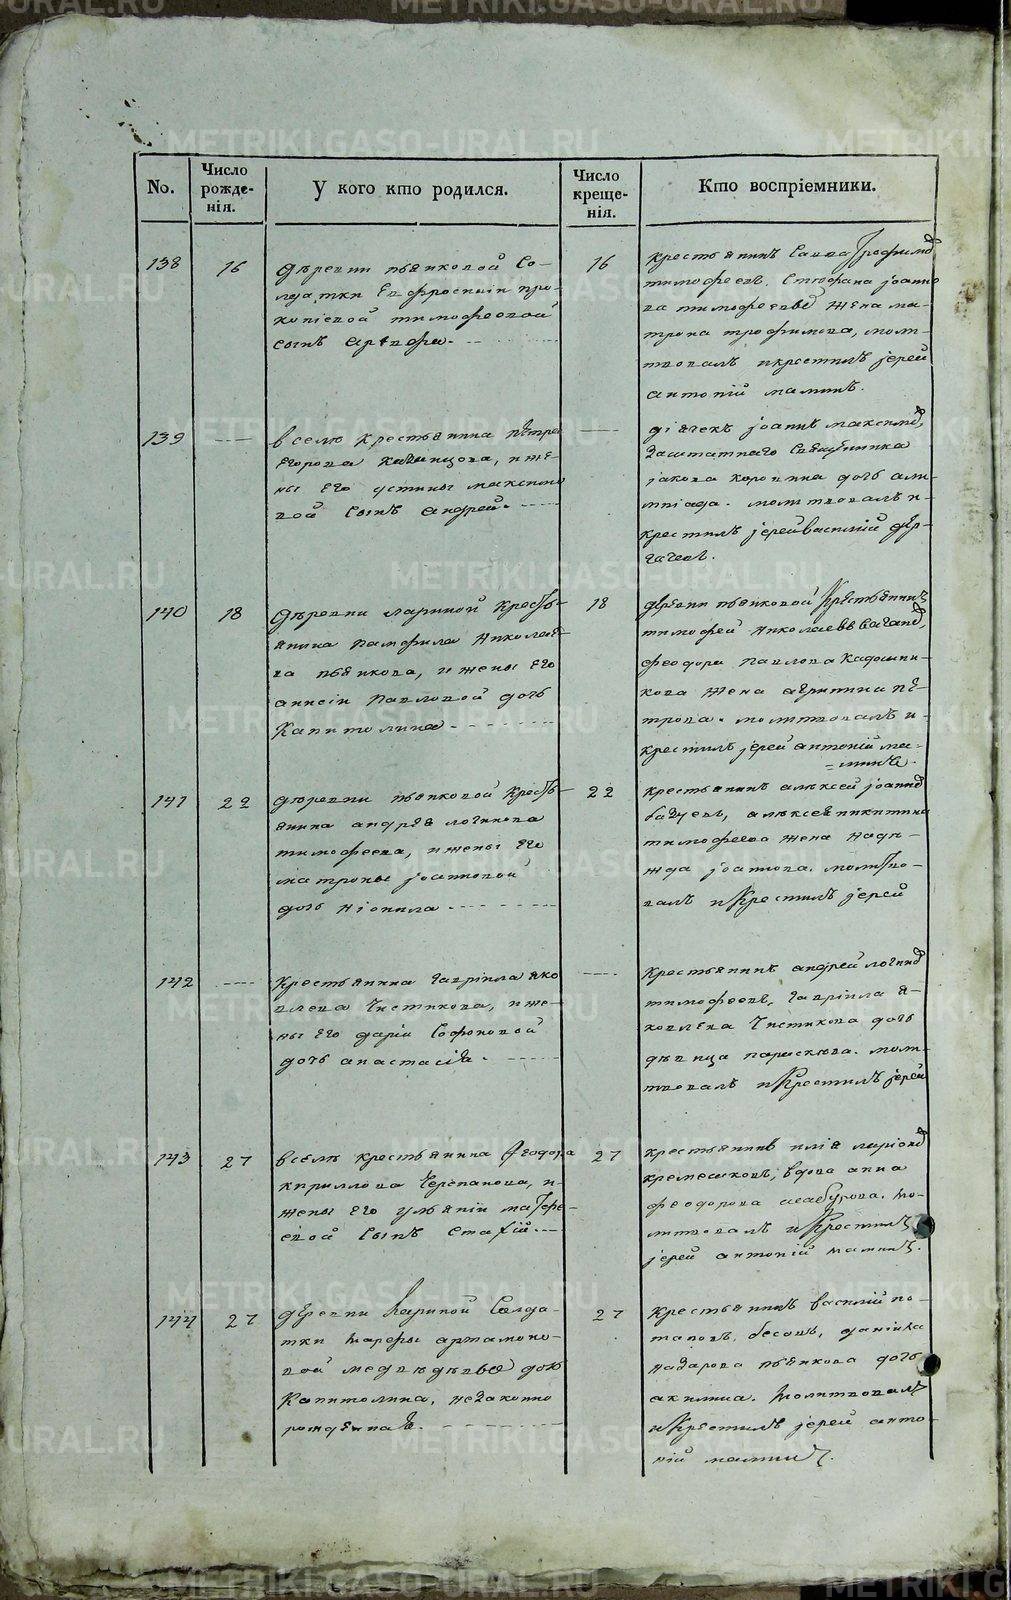 No.
Число рожденія.
У кого кто родился.
Число крещенія.
Кто воспріемники.
138
16
деревни пьянковой Со-
лдатки Евфросиніи про-
копіевой тимофеевой
сынъ
16
крестьянинъ Савва
тимофеевъ. Стефана іоанно
ва тимофеева жена ма-
трона трофимова, моли-
твовалъ и крестилъ іерей
антоній маминъ.
139
в селе крестьянина петра
Егорова казанцова, и же-
ны Его устиньи максимо
вой сынъ андрей.
дьячекъ іоаннъ
заштатнаго
іакова коровина дочь али-
мпіада. молитвовалъ и
крестилъ іерей василій дер-
гачевъ.
140
18
деревни лариной кресть-
янина памфила николае
ва пьянкова, и жены Его
анисіи павловой дочь
Капитолина.
18
деревни пьянковой крестьянинъ
тимофей николаевъ
феодора павлова кадошни-
кова жена пе-
трова. молитвовалъ и
крестилъ іерей антоній ма-
=минъ.
141
22
деревни пьянковой кресть-
янина андрея логинова
тимофеева, и жены Его
матроны іоанновой
дочь Ніонила.
22
крестьянинъ алексей
алексея никитина
тимофеева жена наде-
жда іоаннова. молитво-
валъ и крестилъ іерей
142
крестьянина гавріила яко
влева Чистикова, и же-
ны Его даріи Софоновой
дочь анастасія.
крестьянинъ андрей логиновъ
тимофеевъ, гавріила я-
ковлева Чистикова дочь
девица параскева. моли-
твовалъ и крестилъ іерей
143
27
в селе крестьянина Феодора
кириллова Черепанова, и
жены Его ульяніи матфе-
евой сынъ Стахій.
27
крестьянинъ илія
вдова анна
феодорова
литвовалъ и крестилъ
іерей антоній маминъ.
144
27
деревни лариной Солда-
тки марфы артамоно-
вой медведевой дочь
Капитолина, незаконно
рожденная.
27
крестьянинъ василій по-
таповъ бесовъ, даніила
назарова пьянкова дочь
акилина. молитвовалъ
и крестилъ іерей анто-
ній маминъ.
METRIKI.GASO-URAL.RU